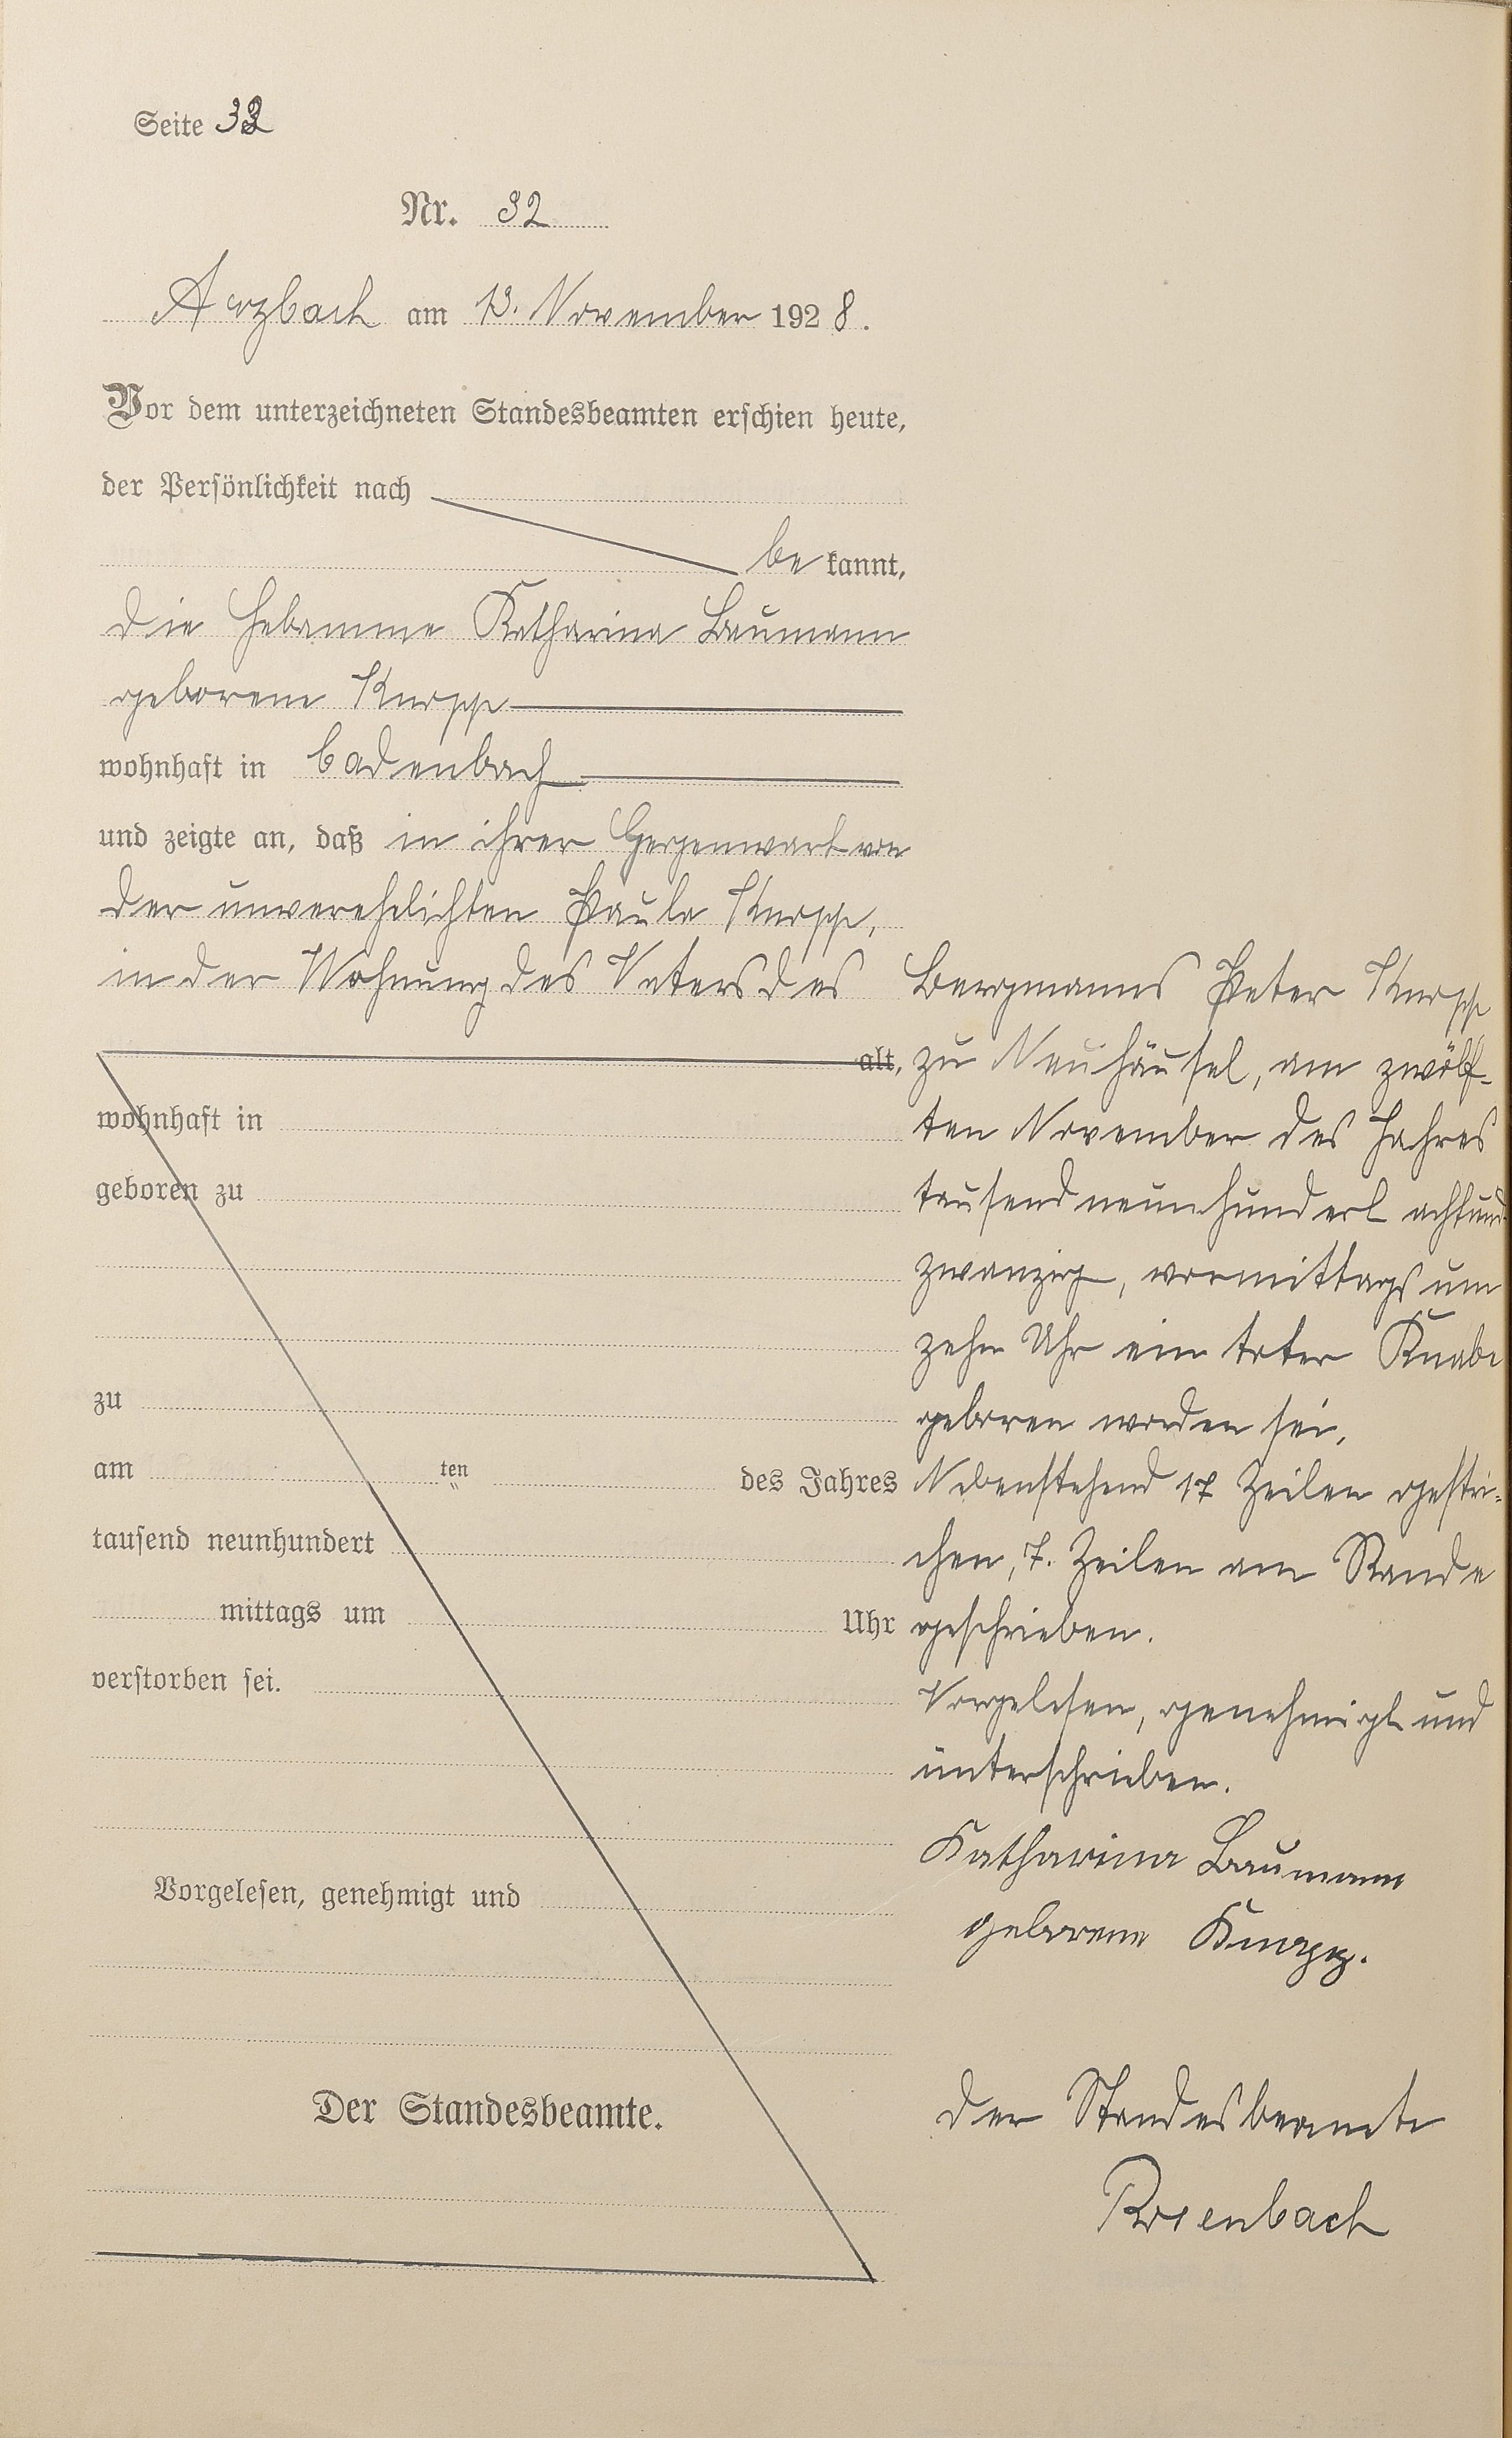 Seite 33
Nr. 32
Arzbach am 13. November 1928.
Vor dem unterzeichneten Standesbeamten erschien heute,
der Persönlichkeit nach
be kannt,
die Hebamme Katharina Baumann
geborene Knopp
wohnhaft in Cadenbach
und zeigte an, daß in ihrer Gegenwart von
der unverehelichten Paula Knopp,
in der Wohnung des Vaters des
Bergmanns Peter Knopp
alt, zu Neuhäusel, am zwölf-
wohnhaft in
ten November des Jahres
geboren zu
tausend neunhundert achtund
zwanzig, vormittags um
zehn Uhr ein toter Knabe
zu
geboren worden sei.
am ten des Jahres
Nebenstehend 17 Zeilen gestri-
tausend neunhundert
chen, 7. Zeilen am Rande
mittags um Uhr
geschrieben.
verstorben sei.
Vorgelesen, genehmigt und
unterschrieben.
Katharina Baumann
Vorgelesen, genehmigt und
geborene Knopp.
Der Standesbeamte.
Der Standesbeamte